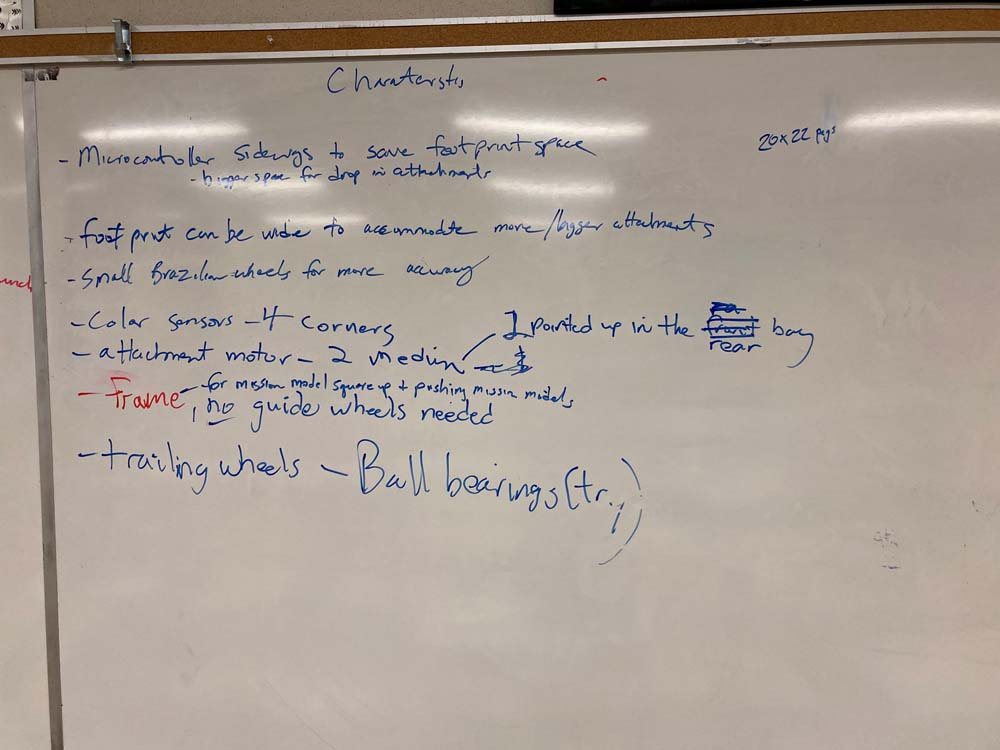 Charaterstis
20x22 pegs
- Microcontroller sideways to save footprint space
- bigger space for drop in attachments
- footprint can be wide to accommodate more/bigger attachments
- Small Brazilian wheels for more accuracy
- Color sensors - 4 corners
- attachment motor - 2 medium
1 pointed up in the rear bay
- Frame - for mission model square up + pushing mission models
, no guide wheels needed
- trailing wheels - Ball bearings (tr.i)